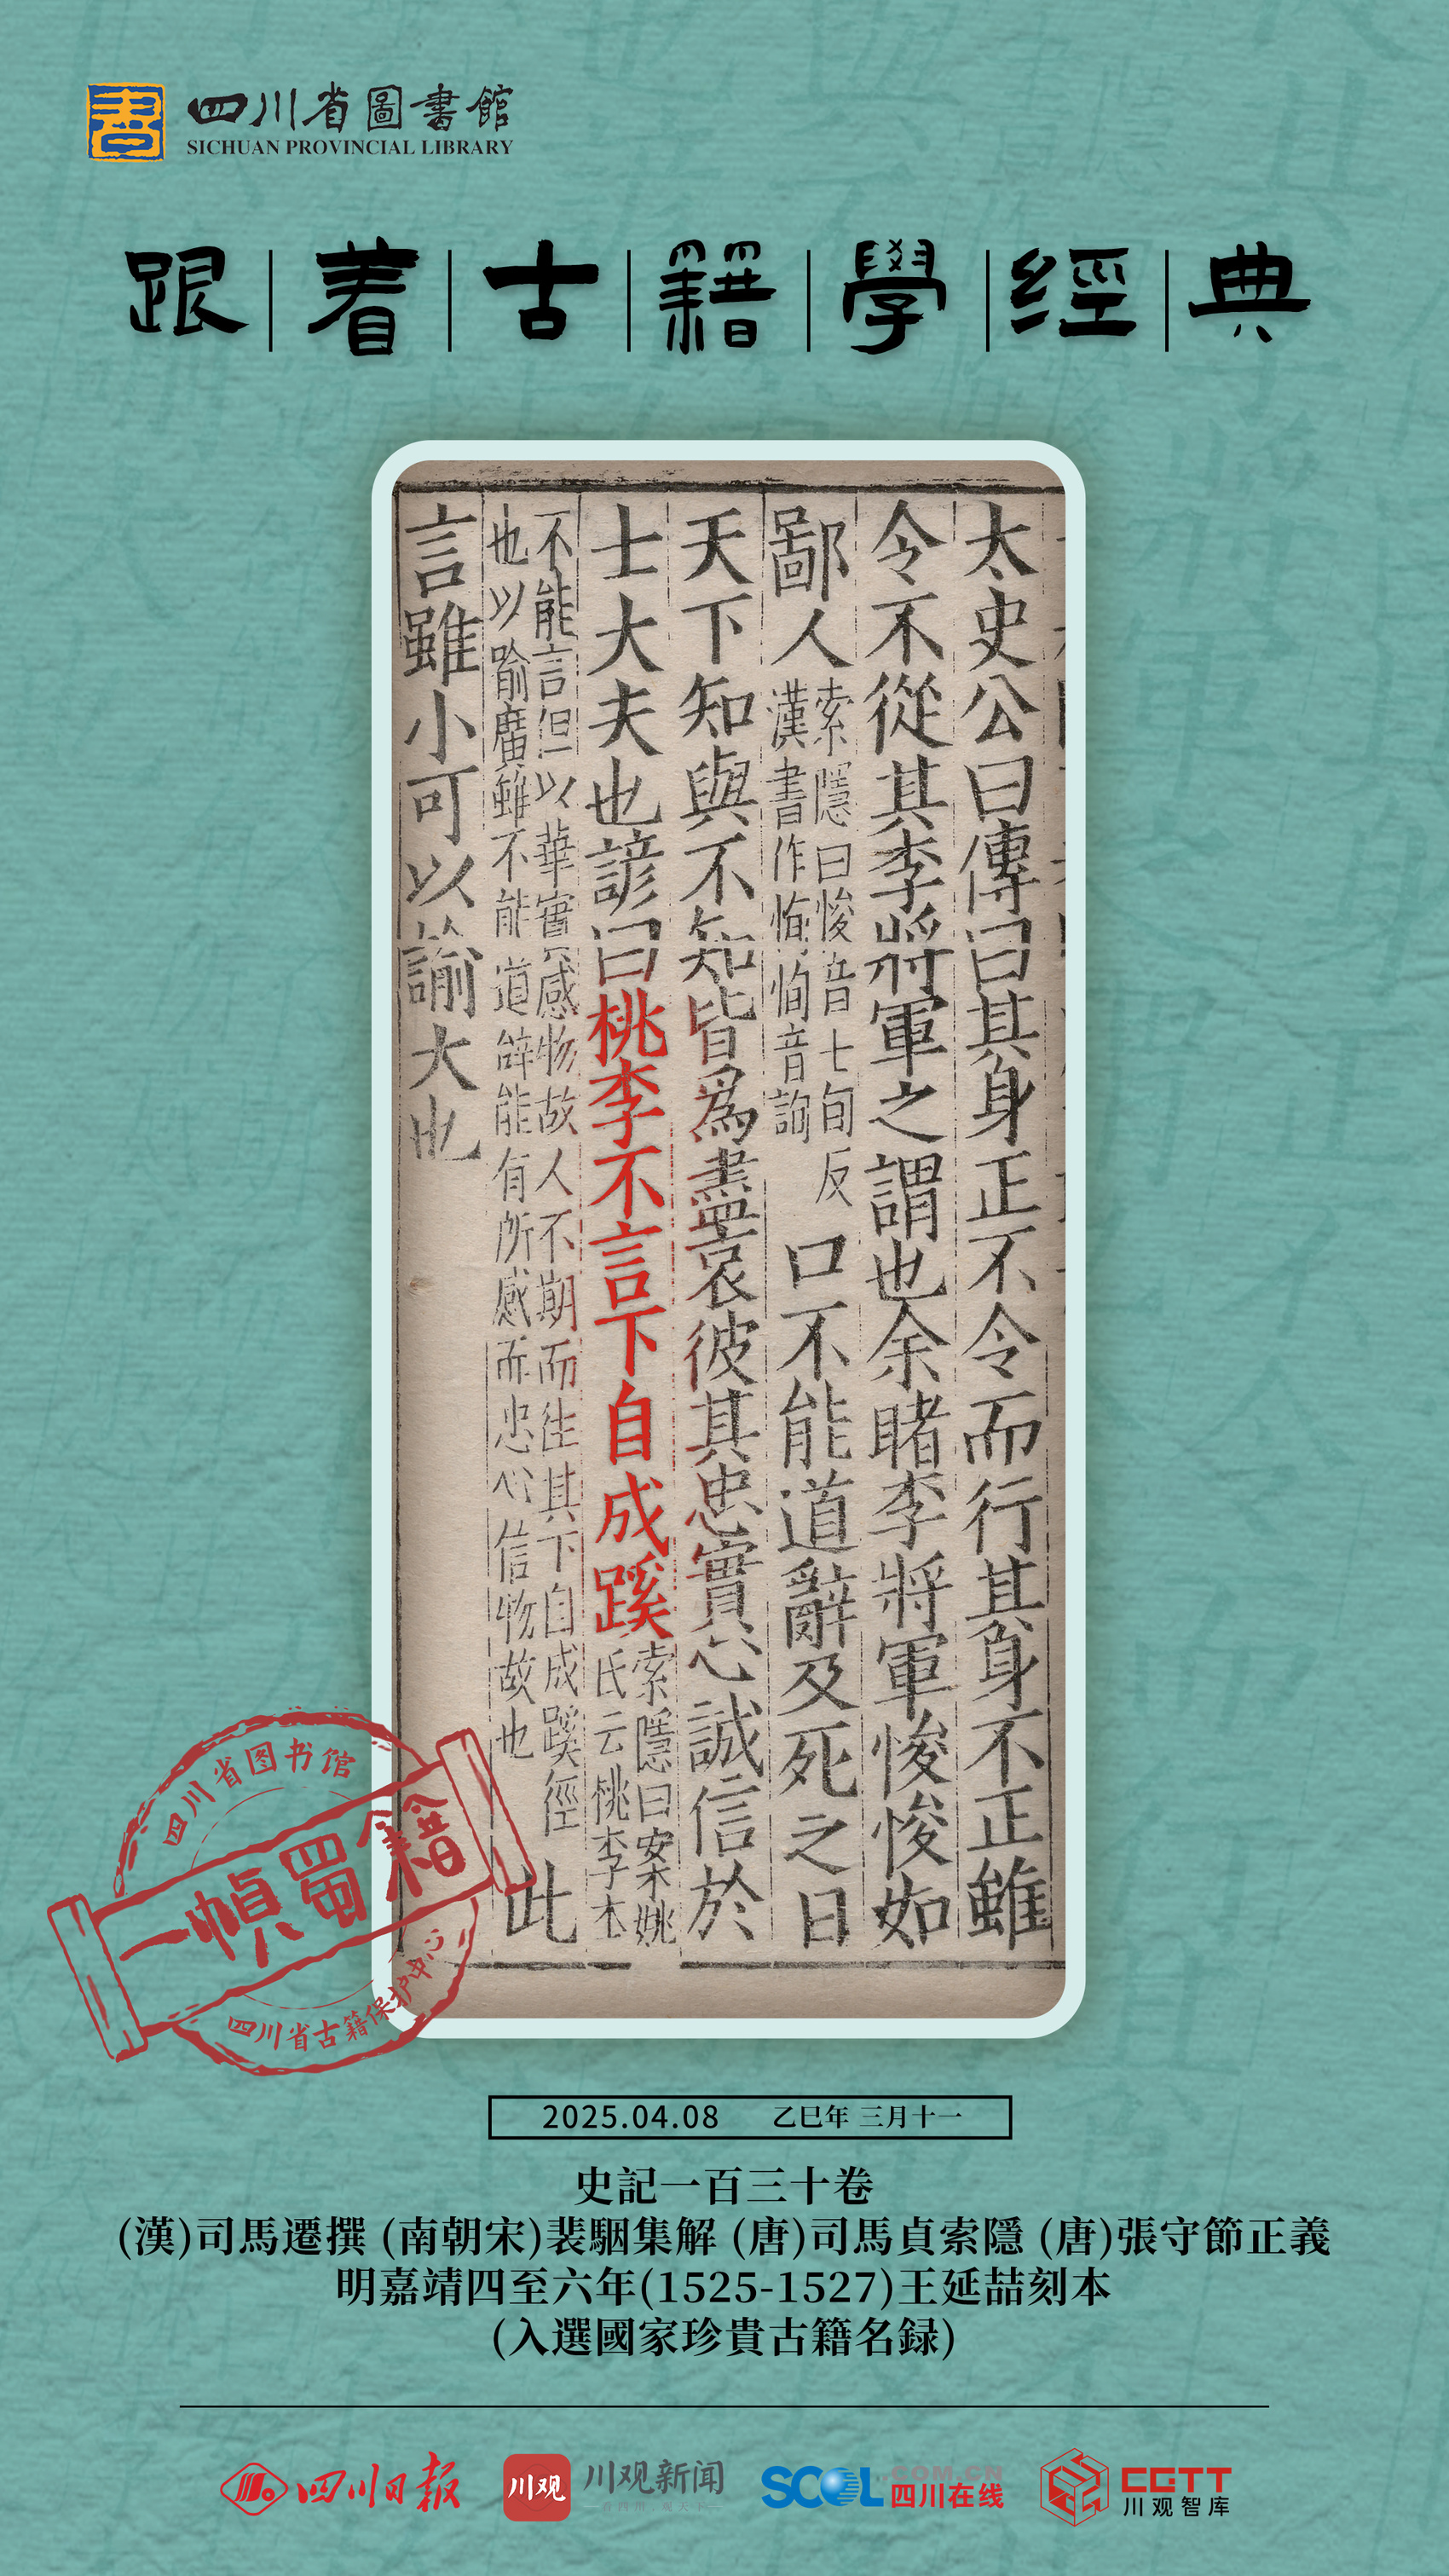 四川省圖書館
SICHUAN PROVINCIAL LIBRARY
跟着古籍學經典
太史公曰傳曰其身正不令而行其身不正雖
令不從其李將軍之謂也余睹李將軍悛悛如
鄙人
索隱曰悛音七旬反
漢書作恂恂音詢
口不能道辭及死之日
天下知與不知皆爲盡哀彼其忠實心誠信於
士大夫也諺曰桃李不言下自成蹊
索隱曰案姚
氏云桃李本
不能言但以華實感物故人不期而往其下自成蹊徑
也以喻廣雖不能道辭能有所感而忠心信物故也
此
言雖小可以諭大也
四川省图书馆
一幀蜀籍
四川省古籍保护中心
2025.04.08 乙巳年 三月十一
史記一百三十卷
(漢)司馬遷撰 (南朝宋)裴駰集解 (唐)司馬貞索隱 (唐)張守節正義
明嘉靖四至六年(1525-1527)王延喆刻本
(入選國家珍貴古籍名録)
四川日报
川观
川观新闻
SCOL.COM.CN
四川在线
CGTT
川观智库